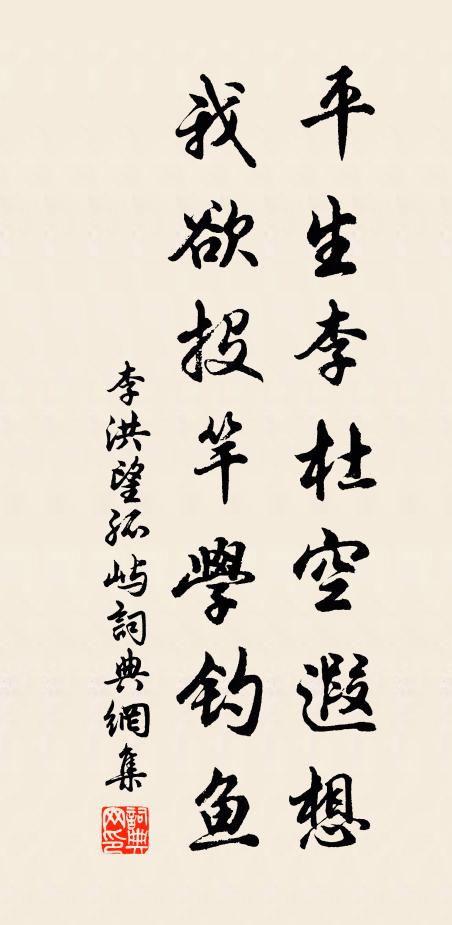 平生李杜空遐想
我欲投竿學钓鱼
李洪望孤屿詞典網集
詞典网印